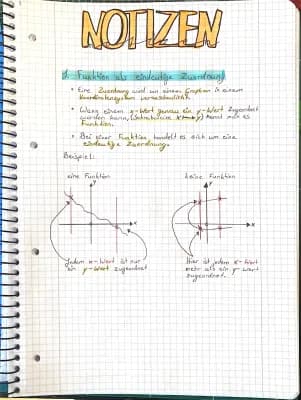 NOTIZEN
1. Funktion als eindeutige Zuordnung
• Eine Zuordnung wird von einem Graphen in einem
Koordinatensystem veranschaulicht.
• Wenn einem x-Wert genau ein y-Wert zugeordnet
werden kann, (Schreibweise x→y) nennt man es
Funktion.
• Bei einer Funktion handelt es sich um eine
eindeutige Zuordnung.
Beispiel:
eine Funktion
keine Funktion
y
x
y
x
Jedem x-Wert ist nur
ein y-Wert zugeordnet
Hier ist jedem x-Wert
mehr als ein y-Wert
zugeordnet.